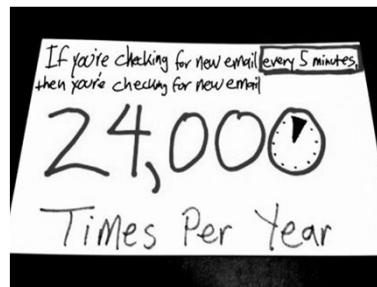 If you're checking for new email every 5 minutes,
then you're checking for new email
24,000
Times Per Year